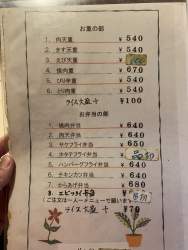 お重の部
1. 肉天重 ¥ 540
2. きす天重 ¥ 540
3. えび天重 ¥
4. 焼肉重 ¥ 670
5. ¥ 540
6. とり肉重 ¥ 540
ライス大盛 + ¥100
お弁当の部
1. 焼肉弁当 ¥ 640
2. 肉天弁当 ¥ 640
3. サケフライ弁当 ¥ 650
4. ホタテフライ弁当 ¥
5. ハンバーグフライ弁当 ¥ 640
6. チキンカツ弁当 ¥ 640
7. からあげ弁当 ¥ 680
エビフライ弁当
(ご注文は一人一メニューで願います)
ライス大盛 + ¥70